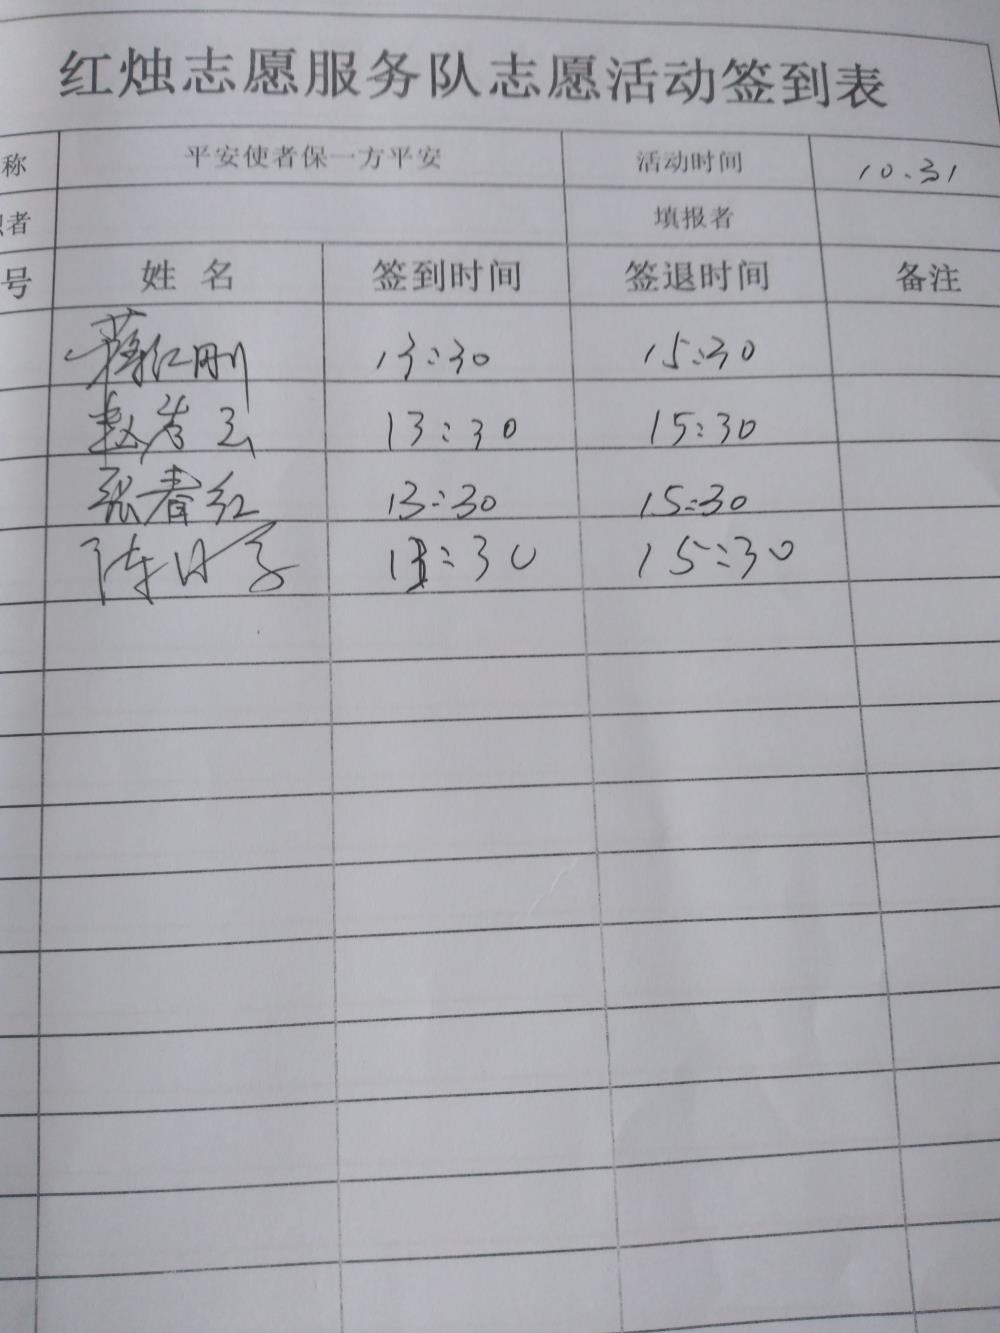 红烛志愿服务队志愿活动签到表
称 平安使者保一方平安 活动时间 10.31
者 填报者
号 姓名 签到时间 签退时间 备注
蒋红刚 13:30 15:30
赵 13:30 15:30
张春红 13:30 15:30
陈 13:30 15:30